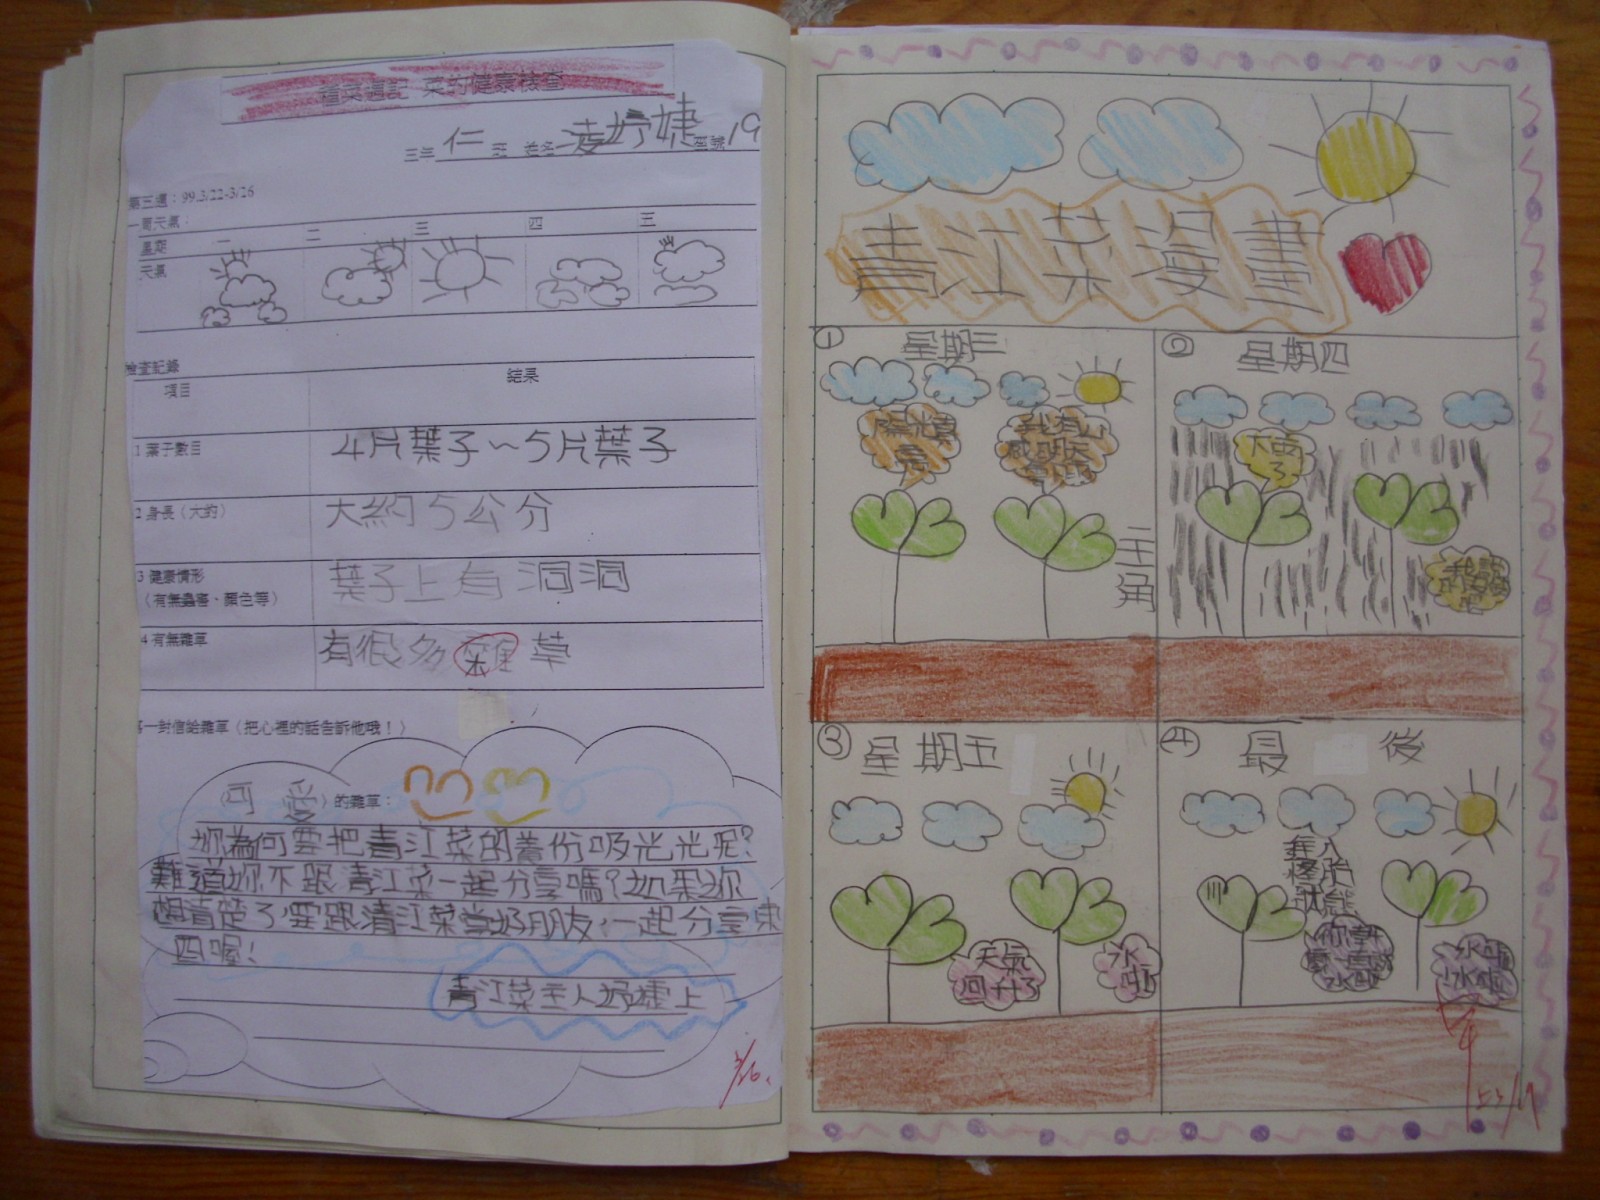 種菜週記 菜的健康檢查
三年 仁 班 姓名 凌妤婕 座號 19
第三週：99.3/22-3/26
一周天氣：
星期 一 二 三 四 五
天氣
檢查記錄
項目 結果
1 葉子數目 4片葉子～5片葉子
2 身長（大約） 大約5公分
3 健康情形 葉子上有洞洞
（有無蟲害、顏色等）
4 有無雜草 有很多雜草
一封信給雜草（把心裡的話告訴他哦！）
（可愛）的雜草：
妳為何要把青江菜的養份吸光光呢？
難道妳不跟青江菜一起分享嗎？如果妳
想清楚了，要跟清江菜當好朋友，一起分享東
四喔！
青江菜主人妤婕上
3/26.
青江菜漫畫
① 星期三
陽光真
主角
② 星期四
大雨
了
③ 星期五
天氣
回升了
④ 最後